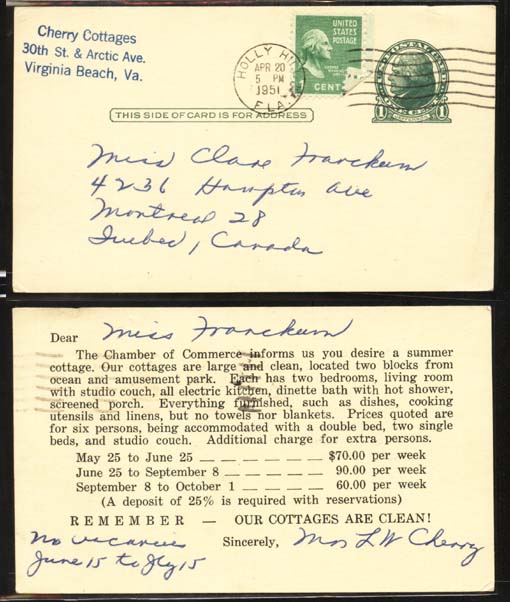 Cherry Cottages
30th St. & Arctic Ave.
Virginia Beach, Va.
UNITED
STATES
POSTAGE
CENT
HOLLY HI
APR 20
5 PM
1951
FLA.
1
THIS SIDE OF CARD IS FOR ADDRESS
Miss Clare Franckum
4236 Hampton Ave
Montreal 28
Quebec, Canada
Dear Miss Franckum
The Chamber of Commerce informs us you desire a summer
cottage. Our cottages are large and clean, located two blocks from
ocean and amusement park. Each has two bedrooms, living room
with studio couch, all electric kitchen, dinette bath with hot shower,
screened porch. Everything furnished, such as dishes, cooking
utensils and linens, but no towels nor blankets. Prices quoted are
for six persons, being accommodated with a double bed, two single
beds, and studio couch. Additional charge for extra persons.
May 25 to June 25 — — — — — — $70.00 per week
June 25 to September 8 — — — — — 90.00 per week
September 8 to October 1 — — — — 60.00 per week
(A deposit of 25% is required with reservations)
REMEMBER — OUR COTTAGES ARE CLEAN!
No vacancies Sincerely, Mrs L W Cherry
June 15 to Jly 15